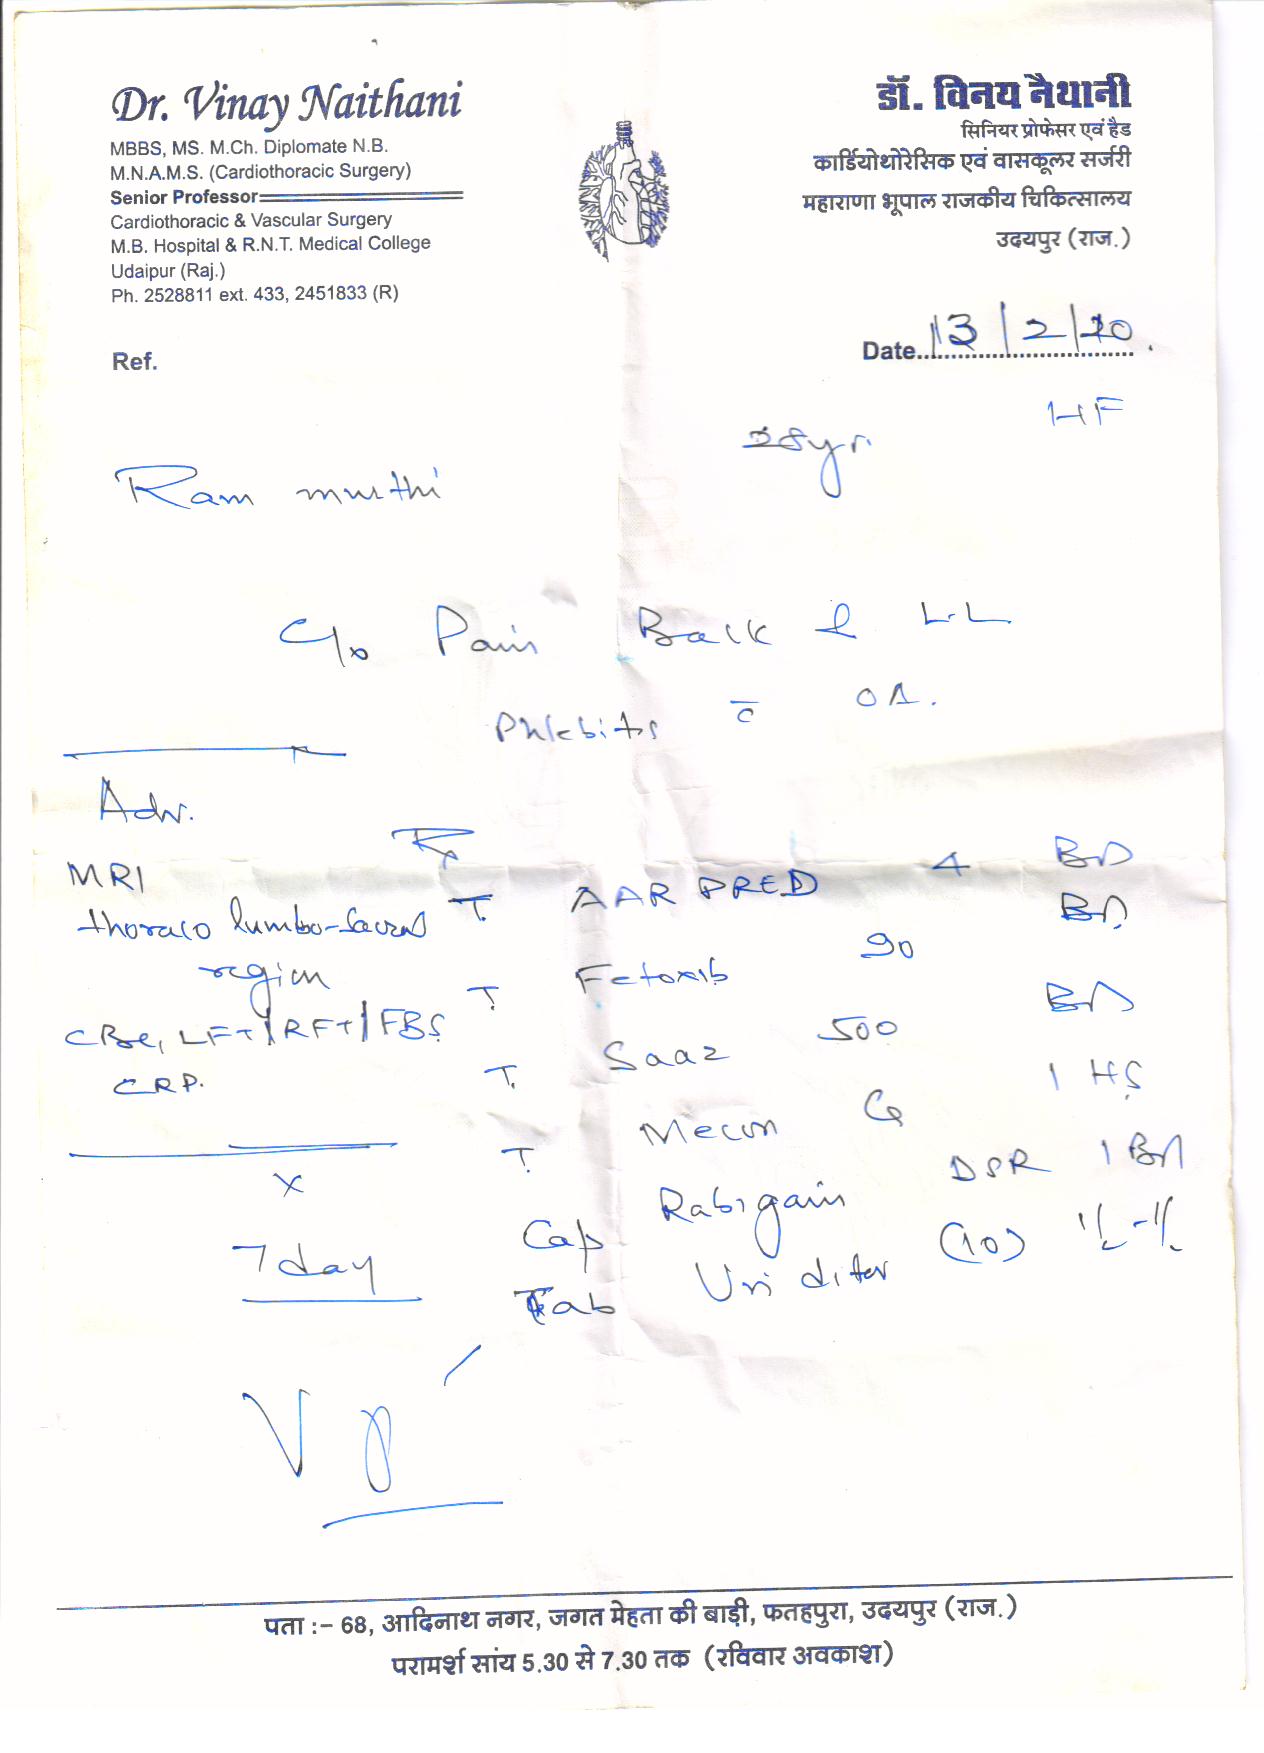 Dr. Vinay Naithani
MBBS, MS. M.Ch. Diplomate N.B.
M.N.A.M.S. (Cardiothoracic Surgery)
Senior Professor
Cardiothoracic & Vascular Surgery
M.B. Hospital & R.N.T. Medical College
Udaipur (Raj.)
Ph. 2528811 ext. 433, 2451833 (R)
डॉ. विनय नैथानी
सिनियर प्रोफेसर एवं हैड
कार्डियोथोरेसिक एवं वासकूलर सर्जरी
महाराणा भूपाल राजकीय चिकित्सालय
उदयपुर (राज.)
Ref.
Date 13/2/20
HF
Ram murthi
C/o Pain Back & L.L
Phlebits c̄ OA.
Adv.
MRI
thoraco lumbo-Sacral
region
CBC, LFT/RFT/FBS
CRP.
x
7 day
Rx
T. AAR PRED 4 BD
T. Etoxib 90 BD
T. Saaz 500 BD
T. Mecon G 1 HS
Cap Rabigain DSR 1 BD
Tab Uri ditor (10) 1/2-1/2
पता :- 68, आदिनाथ नगर, जगत मेहता की बाड़ी, फतहपुरा, उदयपुर (राज.)
परामर्श सांय 5.30 से 7.30 तक (रविवार अवकाश)